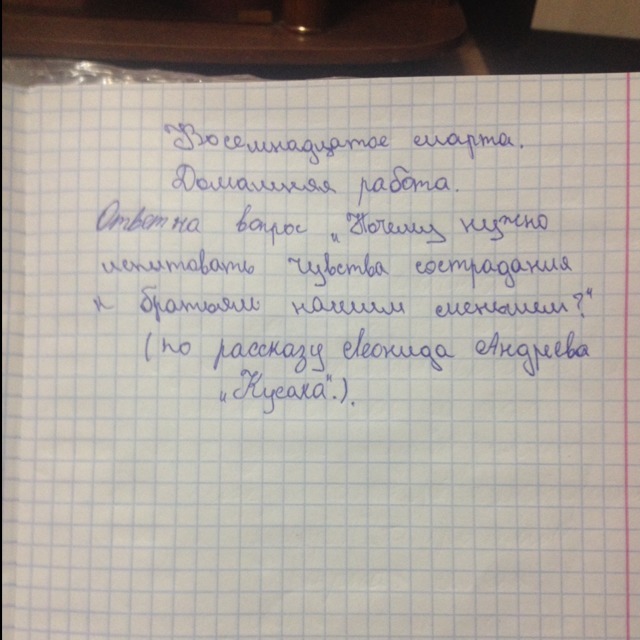 Восемнадцатое марта.
Домашняя работа.
Ответ на вопрос „Почему нужно
испытовать чувства сострадания
к братьям нашим меньшим?"
(по рассказу Леонида Андреева
„Кусака".).